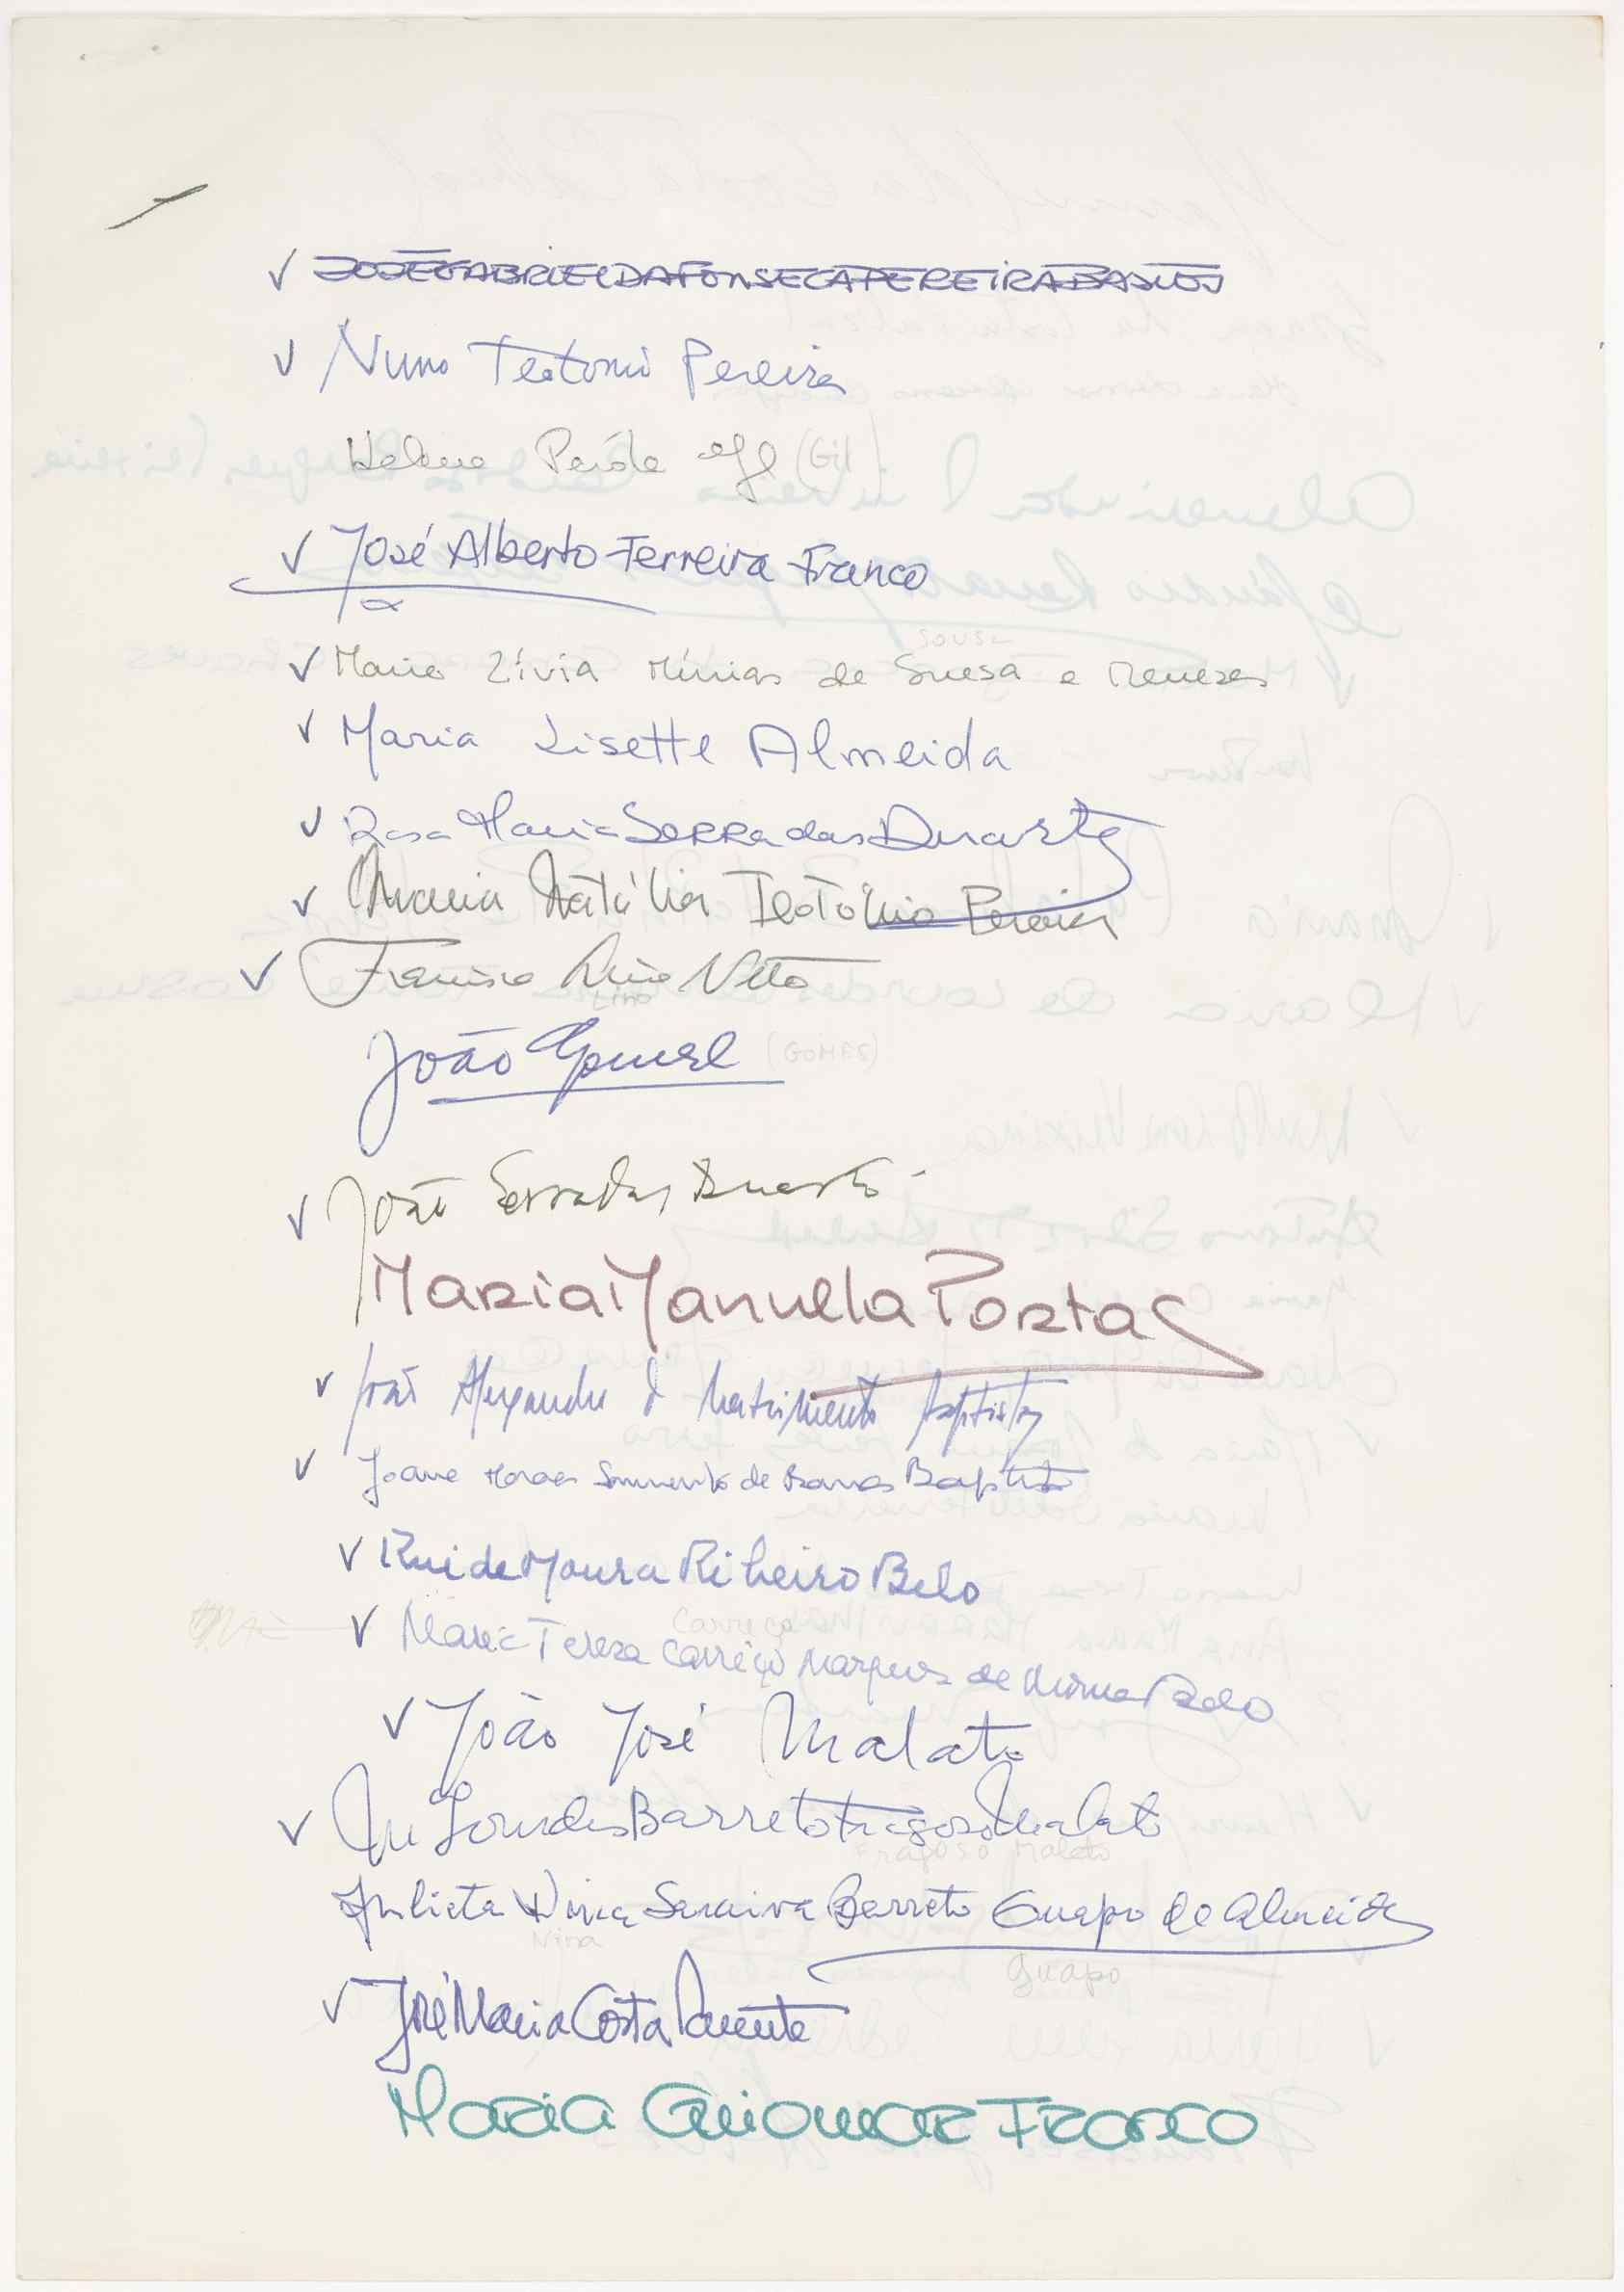 ✓ JOSÉ GABRIEL DA FONSECA PEREIRA BASTOS
✓ Nuno Teotónio Pereira
Helena (Gil)
✓ José Alberto Ferreira Franco
Sousa
✓ Maria Lívia de Sousa e Meneses
✓ Maria Lisette Almeida
✓ Rosa Maria Serradas Duarte
✓ Maria Natália Teotónio Pereira
✓ Francisco Lino Neto
Lino
João (GOMES)
✓ João Serradas Duarte
Maria Manuella Portas
✓ João Alexandre d Nascimento Baptista
✓ Joana de Barros Baptista
✓ Rui de Moura Ribeiro Belo
Carriço
✓ Maria Teresa Carriço Marques de Moura Belo
✓ João José Malato
✓ Mª Lourdes Barreto Fragoso Malato
Fragoso Malato
Julieta Nina Saraiva Barreto Guapo de Almeida
Nina
guapo
✓ José Maria Costa Parente
Maria Guiomar Franco